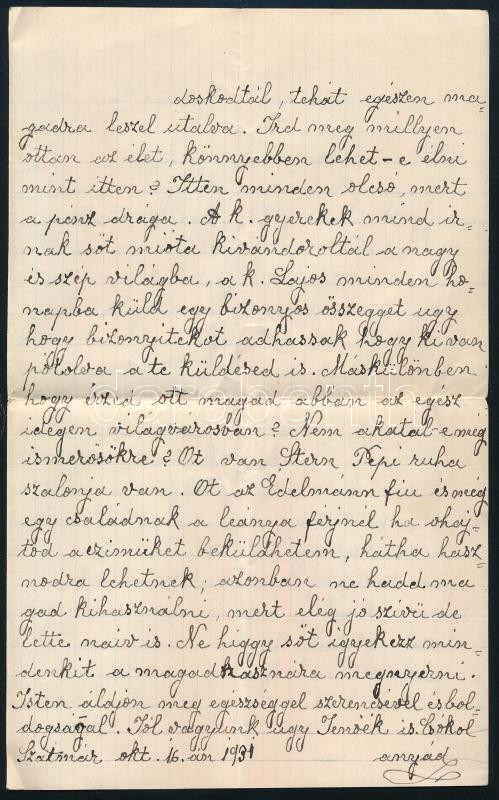 doskodtál, tehát egészen ma=
gadra leszel utalva. Ird meg millyen
ottan az élet, könnyebben lehet-e élni
mint itten? Itten minden olcsó, mert
a pénz drága. A k. gyerekek mind ir=
nak sőt mióta kivándoroltál a nagy
és szép világba, a k. Lajos minden ho=
napba küld egy bizonyos összegget ugy
hogy bizonyitékot adhassak hogy ki van
pótolva a te küldésed is. Máskülömben
hogy érzed ott magad abban az egész
idegen világvarosban? Nem akatál-e még
ismerősökre? Ot van Stern Pepi ruha
szalonja van. Ot az Edelmánn fiu és még
egy családnak a leánya férjnél ha ohaj=
tod a czimüket beküldhetem, hátha hasz=
nodra lehetnek; azonban ne hadd ma
gad kihasználni, mert elég jó szivü de
lette naiv is. Ne higgy sőt igyekezz min=
denkit a magad hasznára megnyerni.
Isten áldjon meg egészséggel szerencsével és bol=
dogsággal. Jól vagyunk ugy Jenőék is. Csókol
Szatmár okt. 16.án 1931 anyád
darabanth